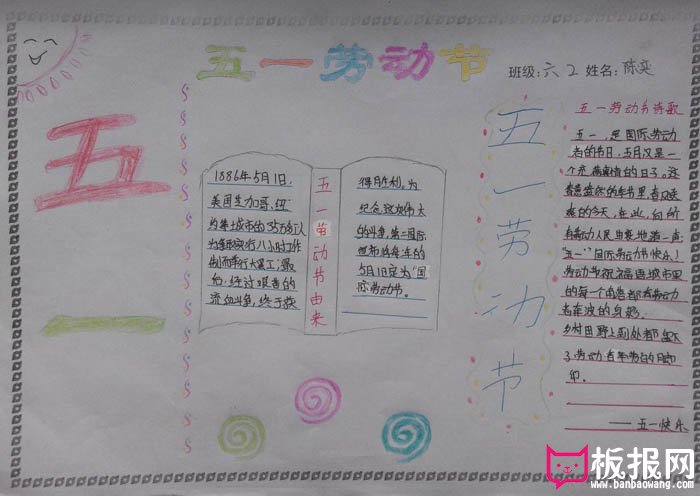 五一劳动节
班级:六2 姓名:陈奕
五
一
1886年5月1日,
美国芝加哥、纽
约等城市的35万名工人
为争取实行八小时工作
制而举行大罢工,最
后,经过艰苦的
流血斗争,终于获
五一劳动节由来
得胜利。为
纪念这次伟大
的斗争,第二国际
宣布将每年的
5月1日定为“国
际劳动节。
五一劳动节
五一劳动节诗歌
五一,是国际劳动
者的节日,5月又是一
个充满
的今天,在此,向所
有劳动人民由衷地道一声:
“五一”国际劳动节快乐!
劳动节祝福
的每个角落都有劳动
者
乡村田野上到处都
了劳动者辛劳的脚
印。
——五一快乐
板报网
www.banbaowang.com